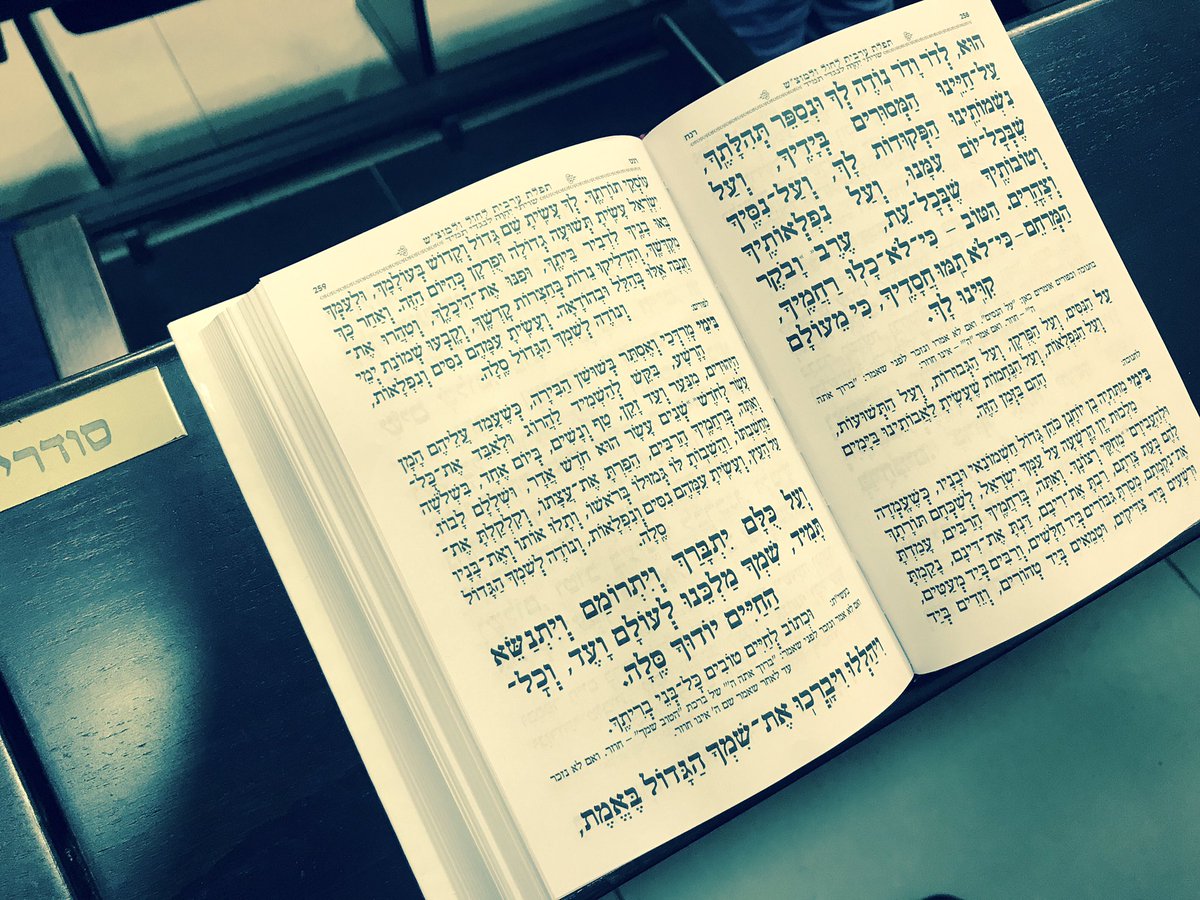 258
תפלת ערבית לחול ולמוצ"ש
רנח
הוּא. לְדוֹר וָדוֹר נוֹדֶה לְּךָ וּנְסַפֵּר תְּהִלָּתֶךָ,
עַל־חַיֵּינוּ הַמְּסוּרִים בְּיָדֶיךָ, וְעַל
נִשְׁמוֹתֵינוּ הַפְּקוּדוֹת לָךְ, וְעַל־נִסֶּיךָ
שֶׁבְּכָל־יוֹם עִמָּנוּ, וְעַל נִפְלְאוֹתֶיךָ
וְטוֹבוֹתֶיךָ שֶׁבְּכָל־עֵת, עֶרֶב וָבֹקֶר
וְצָהֳרָיִם. הַטּוֹב – כִּי־לֹא־כָלוּ רַחֲמֶיךָ,
הַמְרַחֵם – כִּי־לֹא תַמּוּ חֲסָדֶיךָ, כִּי מֵעוֹלָם
קִוִּינוּ לָךְ.
בחנוכה ובפורים אומרים כאן: "על הנסים". ואם לא אמרו ונזכר לפני שאמר: "ברוך אתה
ה'" – חוזר, ואם אמר "ה'" – אינו חוזר:
עַל הַנִּסִּים, וְעַל הַפֻּרְקָן, וְעַל הַגְּבוּרוֹת, וְעַל הַתְּשׁוּעוֹת,
וְעַל הַנִּפְלָאוֹת, וְעַל הַנֶּחָמוֹת שֶׁעָשִׂיתָ לַאֲבוֹתֵינוּ בַּיָּמִים
הָהֵם בַּזְּמַן הַזֶּה.
לחנוכה:
בִּימֵי מַתִּתְיָה בֶן יוֹחָנָן כֹּהֵן גָּדוֹל חַשְׁמוֹנָאִי וּבָנָיו, כְּשֶׁעָמְדָה
מַלְכוּת יָוָן הָרְשָׁעָה עַל עַמְּךָ יִשְׂרָאֵל, לְשַׁכְּחָם תּוֹרָתָךְ
וּלְהַעֲבִירָם מֵחֻקֵּי רְצוֹנָךְ, וְאַתָּה, בְּרַחֲמֶיךָ הָרַבִּים, עָמַדְתָּ
לָהֶם בְּעֵת צָרָתָם, רַבְתָּ אֶת־רִיבָם, דַּנְתָּ אֶת־דִּינָם, נָקַמְתָּ
אֶת־נִקְמָתָם, מָסַרְתָּ גִבּוֹרִים בְּיַד חַלָּשִׁים, וְרַבִּים בְּיַד מְעַטִּים,
וּרְשָׁעִים בְּיַד צַדִּיקִים, וּטְמֵאִים בְּיַד טְהוֹרִים, וְזֵדִים בְּיַד
רנט
תפלת ערבית לחול ולמוצ"ש
259
עוֹסְקֵי תוֹרָתֶךָ, לְךָ עָשִׂיתָ שֵׁם גָּדוֹל וְקָדוֹשׁ בְּעוֹלָמָךְ, וּלְעַמְּךָ
יִשְׂרָאֵל עָשִׂיתָ תְּשׁוּעָה גְדוֹלָה וּפֻרְקָן כְּהַיּוֹם הַזֶּה, וְאַחַר כָּךְ
בָּאוּ בָנֶיךָ לִדְבִיר בֵּיתֶךָ, וּפִנּוּ אֶת־הֵיכָלֶךָ, וְטִהֲרוּ אֶת־
מִקְדָּשֶׁךָ, וְהִדְלִיקוּ נֵרוֹת בְּחַצְרוֹת קָדְשֶׁךָ, וְקָבְעוּ שְׁמוֹנַת יְמֵי
חֲנֻכָּה אֵלּוּ בְּהַלֵּל וּבְהוֹדָאָה, וְעָשִׂיתָ עִמָּהֶם נִסִּים וְנִפְלָאוֹת,
וְנוֹדֶה לְשִׁמְךָ הַגָּדוֹל סֶלָה.
לפורים:
בִּימֵי מָרְדְּכַי וְאֶסְתֵּר בְּשׁוּשַׁן הַבִּירָה, כְּשֶׁעָמַד עֲלֵיהֶם הָמָן
הָרָשָׁע, בִּקֵּשׁ לְהַשְׁמִיד לַהֲרוֹג וּלְאַבֵּד אֶת־כָּל־
הַיְּהוּדִים, מִנַּעַר וְעַד זָקֵן טַף וְנָשִׁים, בְּיוֹם אֶחָד, בִּשְׁלֹשָׁה
עָשָׂר לְחֹדֶשׁ שְׁנֵים עָשָׂר הוּא חֹדֶשׁ אֲדָר, וּשְׁלָלָם לָבוֹז.
וְאַתָּה, בְּרַחֲמֶיךָ הָרַבִּים, הֵפַרְתָּ אֶת־עֲצָתוֹ, וְקִלְקַלְתָּ אֶת־
מַחֲשַׁבְתּוֹ, וַהֲשֵׁבוֹתָ לּוֹ גְּמוּלוֹ בְּרֹאשׁוֹ, וְתָלוּ אוֹתוֹ וְאֶת־בָּנָיו
עַל־הָעֵץ, וְעָשִׂיתָ עִמָּהֶם נִסִּים וְנִפְלָאוֹת, וְנוֹדֶה לְשִׁמְךָ הַגָּדוֹל
סֶלָה.
וְעַל כֻּלָּם יִתְבָּרַךְ וְיִתְרוֹמָם וְיִתְנַשֵּׂא
תָּמִיד, שִׁמְךָ מַלְכֵּנוּ לְעוֹלָם וָעֶד, וְכָל־
הַחַיִּים יוֹדוּךָ סֶּלָה.
בעשי"ת:
וּכְתוֹב לְחַיִּים טוֹבִים כָּל־בְּנֵי בְרִיתֶךָ.
ואם לא אמר ונזכר לפני שאמר: "ברוך אתה ה'" של ברכת "הטוב שמך" – חוזר. ואם לא נזכר
עד לאחר שאמר שם ה' אינו חוזר.
וִיהַלְלוּ וִיבָרְכוּ אֶת־שִׁמְךָ הַגָּדוֹל בֶּאֱמֶת,
סודרי